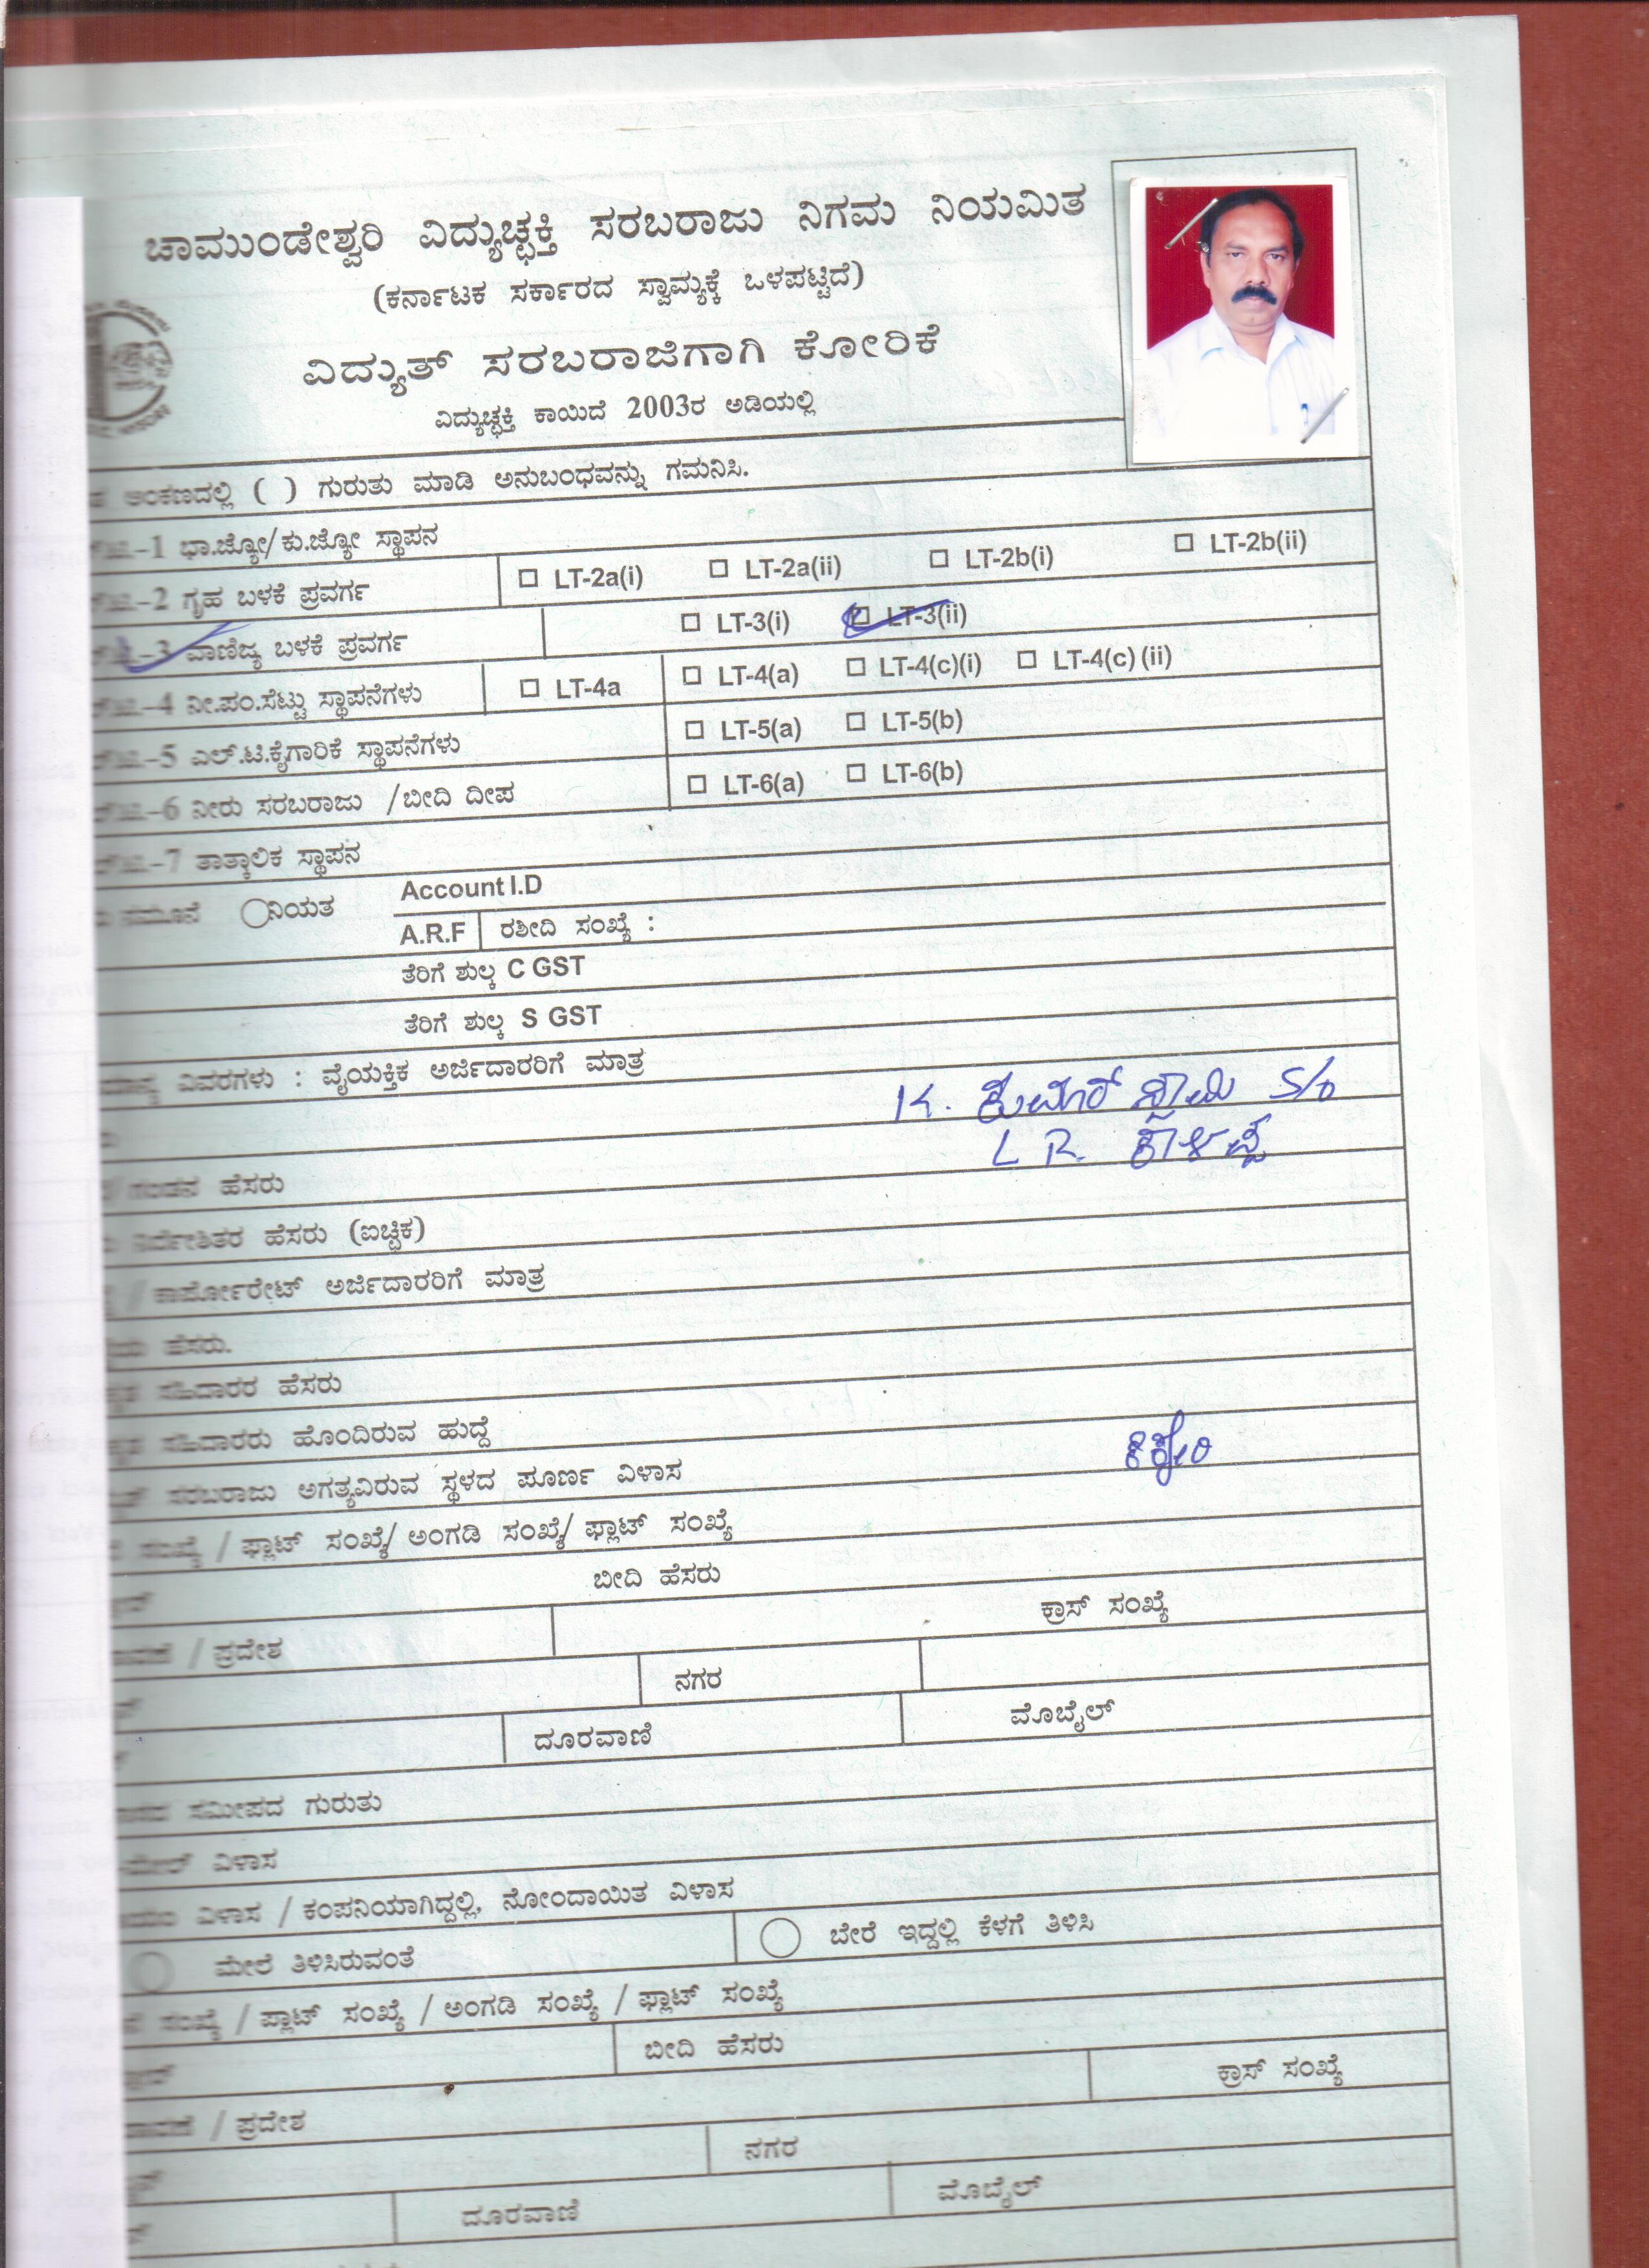 ಚಾಮುಂಡೇಶ್ವರಿ ವಿದ್ಯುಚ್ಛಕ್ತಿ ಸರಬರಾಜು ನಿಗಮ ನಿಯಮಿತ
(ಕರ್ನಾಟಕ ಸರ್ಕಾರದ ಸ್ವಾಮ್ಯಕ್ಕೆ ಒಳಪಟ್ಟಿದೆ)
ವಿದ್ಯುತ್ ಸರಬರಾಜಿಗಾಗಿ ಕೋರಿಕೆ
ವಿದ್ಯುಚ್ಛಕ್ತಿ ಕಾಯಿದೆ 2003ರ ಅಡಿಯಲ್ಲಿ
ಅಂಕಣದಲ್ಲಿ ( ) ಗುರುತು ಮಾಡಿ ಅನುಬಂಧವನ್ನು ಗಮನಿಸಿ.
-1 ಭಾ.ಜ್ಯೋ/ಕು.ಜ್ಯೋ ಸ್ಥಾಪನ
-2 ಗೃಹ ಬಳಕೆ ಪ್ರವರ್ಗ □ LT-2a(i) □ LT-2a(ii) □ LT-2b(i) □ LT-2b(ii)
-3 ವಾಣಿಜ್ಯ ಬಳಕೆ ಪ್ರವರ್ಗ □ LT-3(i) □ LT-3(ii)
-4 ನೀ.ಪಂ.ಸೆಟ್ಟು ಸ್ಥಾಪನೆಗಳು □ LT-4a □ LT-4(a) □ LT-4(c)(i) □ LT-4(c) (ii)
-5 ಎಲ್.ಟಿ.ಕೈಗಾರಿಕೆ ಸ್ಥಾಪನೆಗಳು □ LT-5(a) □ LT-5(b)
-6 ನೀರು ಸರಬರಾಜು /ಬೀದಿ ದೀಪ □ LT-6(a) □ LT-6(b)
-7 ತಾತ್ಕಾಲಿಕ ಸ್ಥಾಪನ
ನಮೂನೆ ನಿಯತ Account I.D
A.R.F ರಶೀದಿ ಸಂಖ್ಯೆ :
ತೆರಿಗೆ ಶುಲ್ಕ C GST
ತೆರಿಗೆ ಶುಲ್ಕ S GST
ವಿವರಗಳು : ವೈಯಕ್ತಿಕ ಅರ್ಜಿದಾರರಿಗೆ ಮಾತ್ರ
K. ಕುಮಾರ್ ಸ್ವಾಮಿ S/o
L R. ಕಾಳಪ್ಪ
/ ಗಂಡನ ಹೆಸರು
ನಿರ್ದೇಶಿತರ ಹೆಸರು (ಐಚ್ಛಿಕ)
/ ಕಾರ್ಪೋರೇಟ್ ಅರ್ಜಿದಾರರಿಗೆ ಮಾತ್ರ
ಹೆಸರು.
ಸಹಿದಾರರ ಹೆಸರು
ಸಹಿದಾರರು ಹೊಂದಿರುವ ಹುದ್ದೆ
ಸರಬರಾಜು ಅಗತ್ಯವಿರುವ ಸ್ಥಳದ ಪೂರ್ಣ ವಿಳಾಸ ಕಿಕ್ಕೇರಿ
ಸಂಖ್ಯೆ / ಫ್ಲಾಟ್ ಸಂಖ್ಯೆ/ ಅಂಗಡಿ ಸಂಖ್ಯೆ/ ಫ್ಲಾಟ್ ಸಂಖ್ಯೆ
ಬೀದಿ ಹೆಸರು
ಕ್ರಾಸ್ ಸಂಖ್ಯೆ
/ ಪ್ರದೇಶ
ನಗರ
ದೂರವಾಣಿ ಮೊಬೈಲ್
ಸಮೀಪದ ಗುರುತು
ವಿಳಾಸ
ವಿಳಾಸ / ಕಂಪನಿಯಾಗಿದ್ದಲ್ಲಿ, ನೋಂದಾಯಿತ ವಿಳಾಸ
ಮೇಲೆ ತಿಳಿಸಿರುವಂತೆ ಬೇರೆ ಇದ್ದಲ್ಲಿ ಕೆಳಗೆ ತಿಳಿಸಿ
ಸಂಖ್ಯೆ / ಪ್ಲಾಟ್ ಸಂಖ್ಯೆ / ಅಂಗಡಿ ಸಂಖ್ಯೆ / ಫ್ಲಾಟ್ ಸಂಖ್ಯೆ
ಬೀದಿ ಹೆಸರು
ಕ್ರಾಸ್ ಸಂಖ್ಯೆ
/ ಪ್ರದೇಶ
ನಗರ
ದೂರವಾಣಿ ಮೊಬೈಲ್